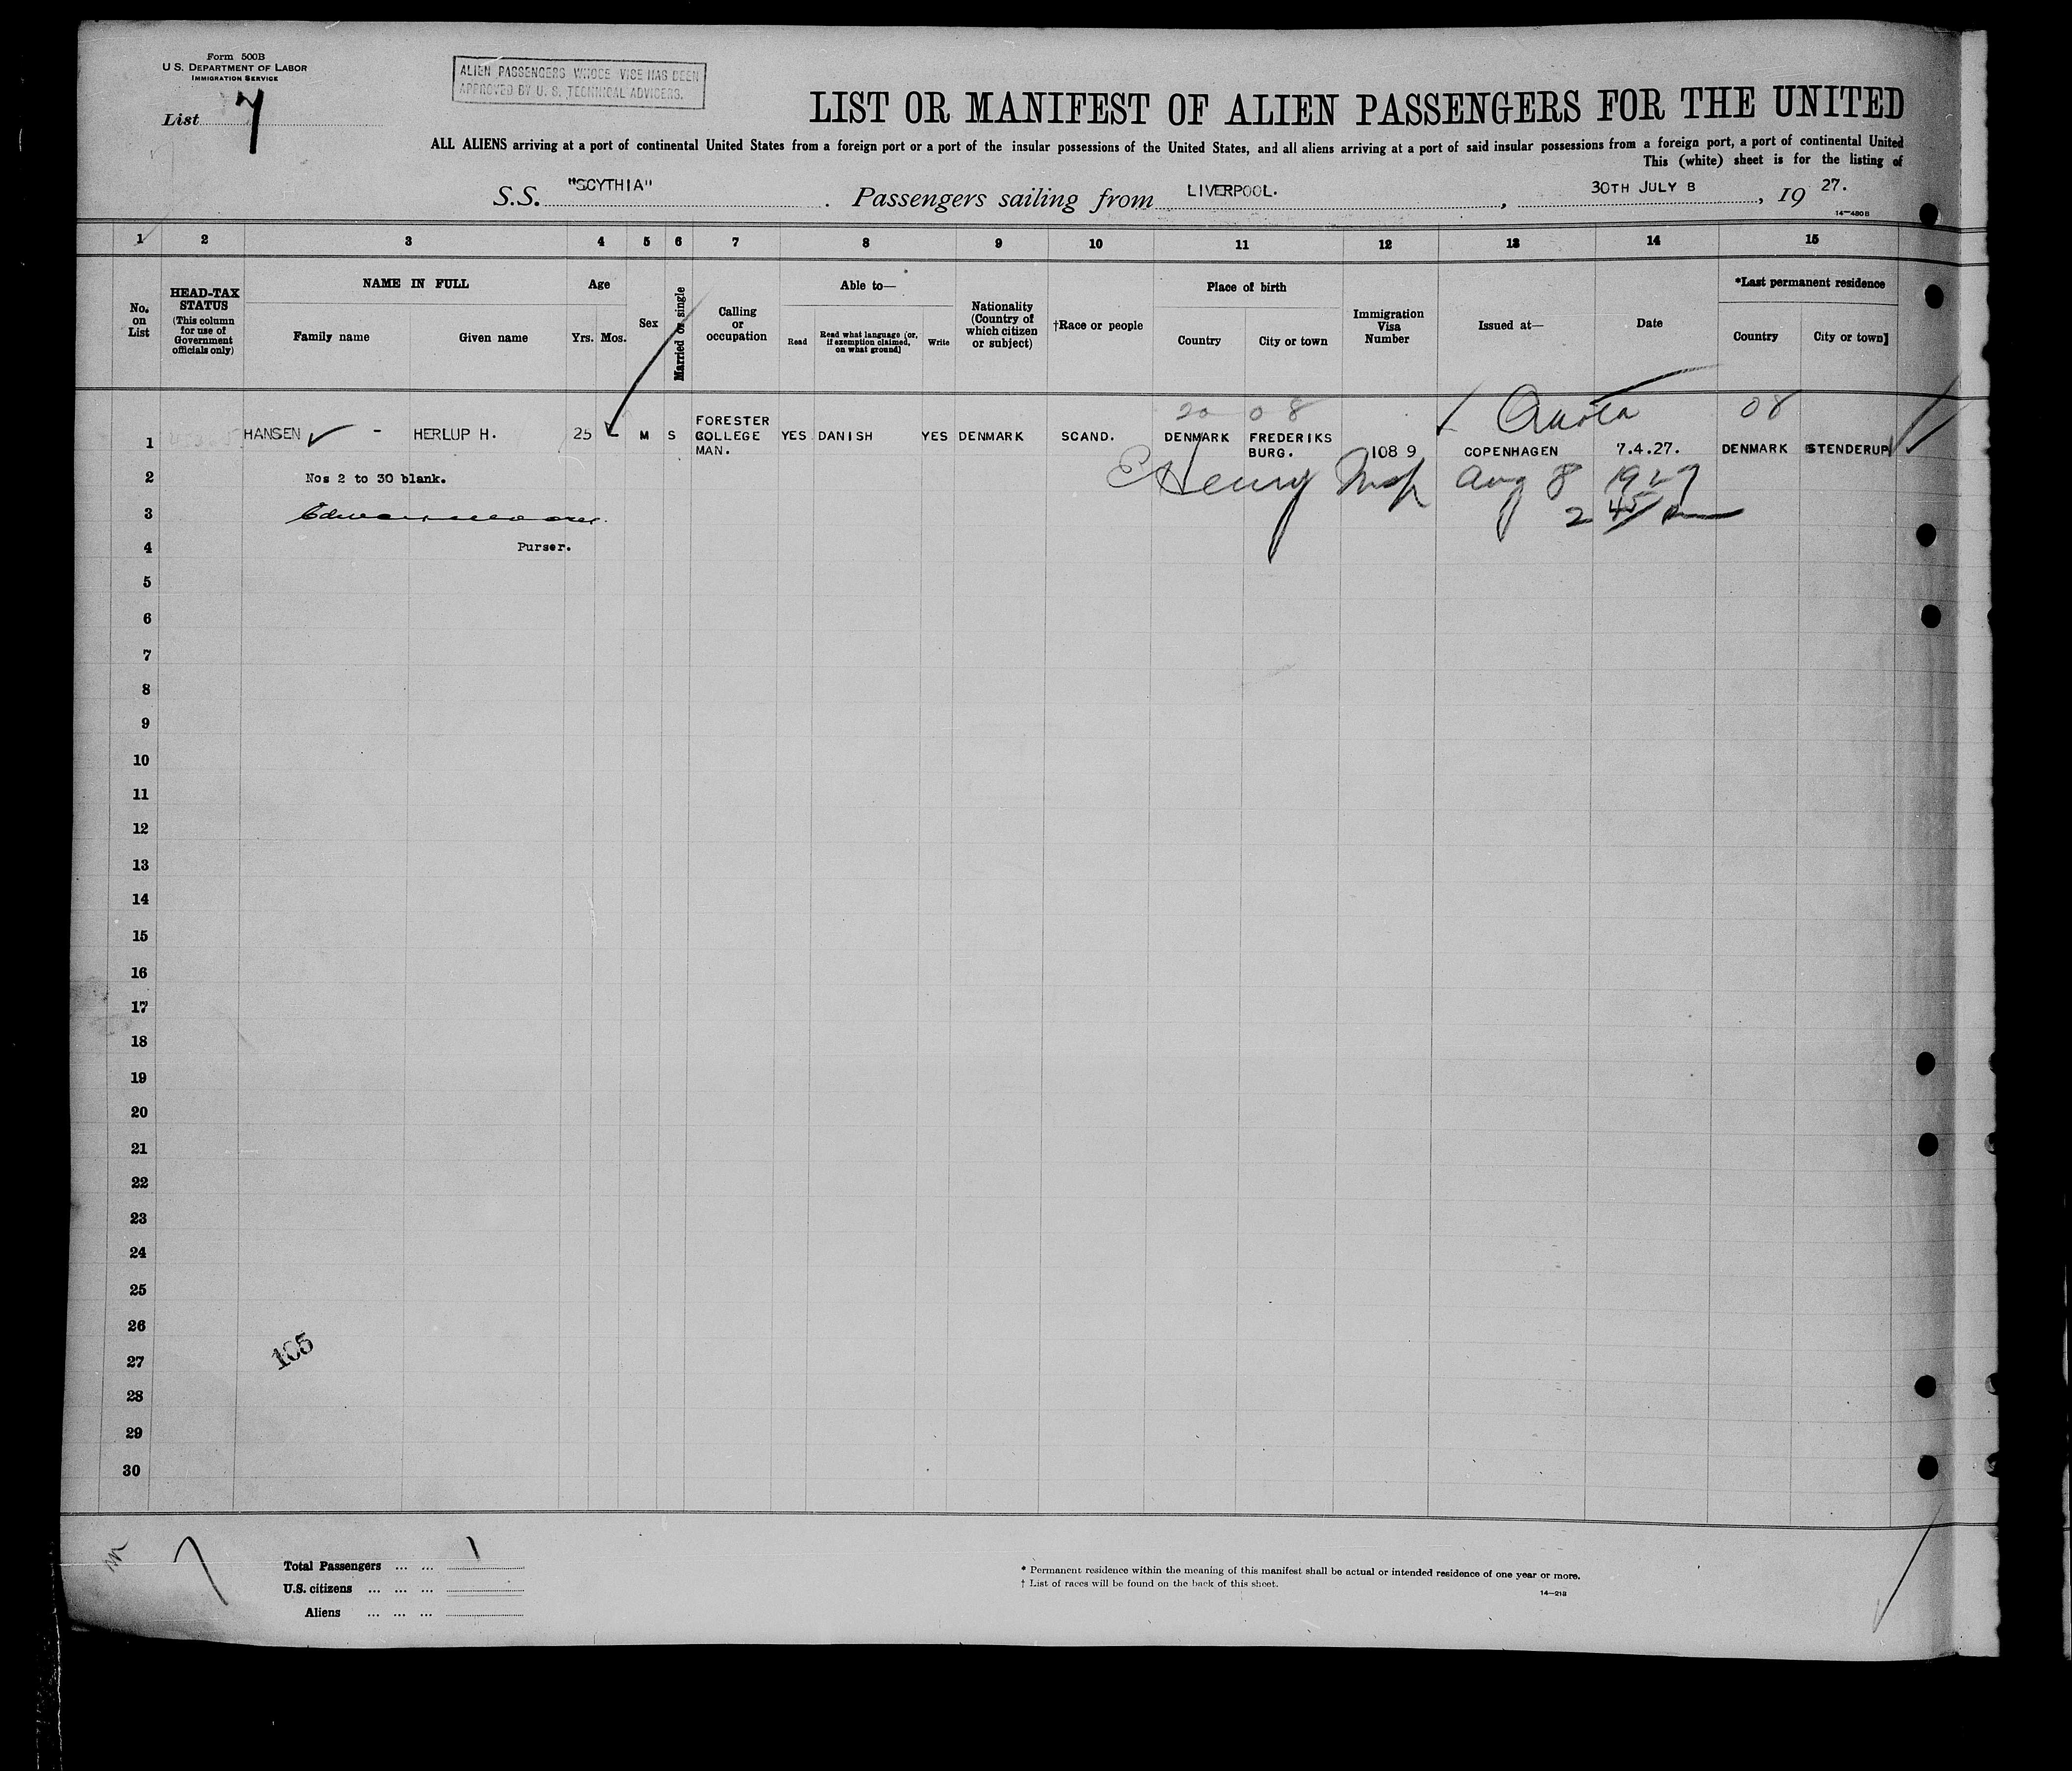 Form 500B
U.S. DEPARTMENT OF LABOR
IMMIGRATION SERVICE
List 7
ALIEN PASSENGERS WHOSE VISE HAS BEEN
APPROVED BY U. S. TECHNICAL ADVISERS.
LIST OR MANIFEST OF ALIEN PASSENGERS FOR THE UNITED
ALL ALIENS arriving at a port of continental United States from a foreign port or a port of the insular possessions of the United States, and all aliens arriving at a port of said insular possessions from a foreign port, a port of continental United
This (white) sheet is for the listing of
S.S. "SCYTHIA" . Passengers sailing from LIVERPOOL. , 30TH JULY B , 19 27.
14—480B
1 2 3 4 5 6 7 8 9 10 11 12 13 14 15
No. on List
HEAD-TAX STATUS
(This column for use of Government officials only)
NAME IN FULL
Family name Given name
Age
Yrs. Mos.
Sex
Married or single
Calling or occupation
Able to—
Read
Read what language [or, if exemption claimed, on what ground]
Write
Nationality (Country of which citizen or subject)
†Race or people
Place of birth
Country City or town
Immigration Visa Number
Issued at—
Date
*Last permanent residence
Country City or town]
20 08 Quota 08
1 HANSEN - HERLUP H. 25 M S FORESTER COLLEGE MAN. YES DANISH YES DENMARK SCAND. DENMARK FREDERIKS BURG. 108 9 COPENHAGEN 7.4.27. DENMARK STENDERUP
2 Nos 2 to 30 blank. Henry Insp Aug 8 1927
3 2 45
4 Purser.
5
6
7
8
9
10
11
12
13
14
15
16
17
18
19
20
21
22
23
24
25
26
105
27
28
29
30
Total Passengers ... ... 1
U.S. citizens ... ... ...
Aliens ... ... ...
* Permanent residence within the meaning of this manifest shall be actual or intended residence of one year or more.
† List of races will be found on the back of this sheet.
14—218